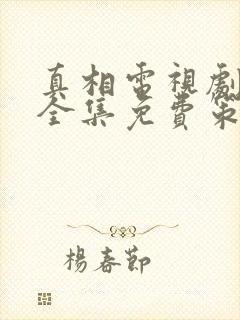 真相電視劇
全集免費策
楊春節